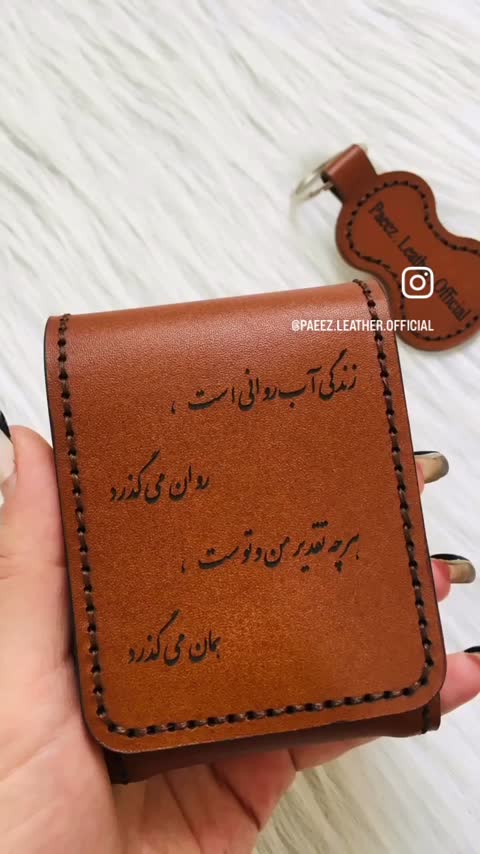 زندگی آب روانی است ،
روان می گذرد
هرچه تقدیر من و توست ،
همان می گذرد
Paeez. Leather. Official
@PAEEZ.LEATHER.OFFICIAL